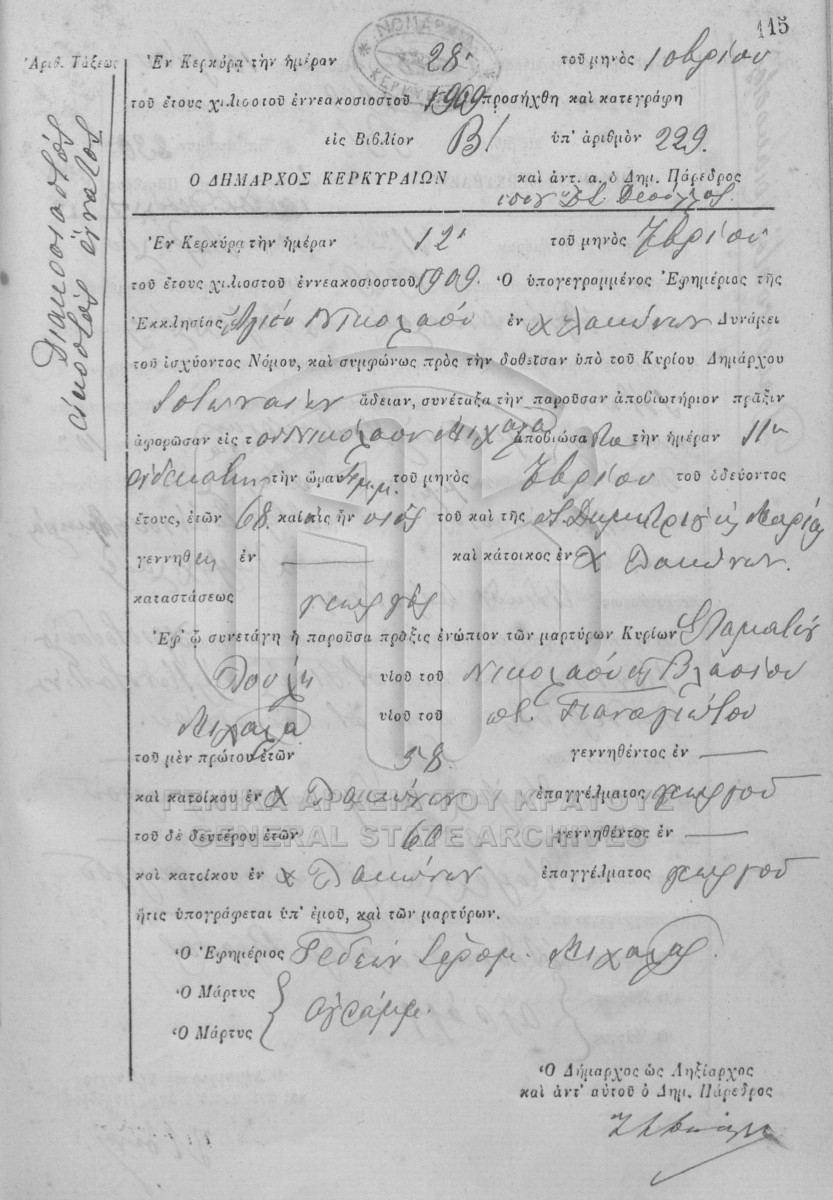 115
ΝΟΜΑΡΧΙΑ
ΚΕΡΚΥΡΑΣ
Ἀριθ. Τάξεως Ἐν Κερκύρᾳ τὴν ἡμέραν 28 τοῦ μηνὸς
τοῦ ἔτους χιλιοστοῦ ἐννεακοσιοστοῦ 1909 προσήχθη καὶ κατεγράφη
εἰς Βιβλίον Β/ ὑπ' ἀριθμὸν 229.
Ο ΔΗΜΑΡΧΟΣ ΚΕΡΚΥΡΑΙΩΝ καὶ ἀντ. α. ὁ Δημ. Πάρεδρος
Διακοσιοστὸς
εἰκοστὸς ἔννατος
Ἐν Κερκύρᾳ τὴν ἡμέραν 12 τοῦ μηνὸς 7βρίου
τοῦ ἔτους χιλιοστοῦ ἐννεακοσιοστοῦ 1909. Ὁ ὑπογεγραμμένος Ἐφημέριος τῆς
Ἐκκλησίας Ἁγίου Νικολάου ἐν χ Λακώνων Δυνάμει
τοῦ ἰσχύοντος Νόμου, καὶ συμφώνως πρὸς τὴν δοθεῖσαν ὑπὸ τοῦ Κυρίου Δημάρχου
ἄδειαν, συνέταξα τὴν παροῦσαν ἀποβιωτήριον πρᾶξιν
ἀφορῶσαν εἰς τ ὸν Νικόλαον Μιχαλᾶ ἀποβιώσα ντα τὴν ἡμέραν 11η
ἑνδεκάτην τὴν ὥραν μ.μ. τοῦ μηνὸς 7βρίου τοῦ ὁδεύοντος
ἔτους, ἐτῶν 68 καὶ ἦν υἱὸς τοῦ καὶ τῆς Δημητρίου Μαρίας
γεννηθ ἐν — καὶ κάτοικος ἐν χ Λακώνων.
καταστάσεως γεωργὸς
Ἐφ' ᾧ συνετάγη ἡ παροῦσα πρᾶξις ἐνώπιον τῶν μαρτύρων Κυρίων Σταματίου
υἱοῦ τοῦ Νικολάου Βλασίου
Μιχαλᾶ υἱοῦ τοῦ Παναγιώτου
τοῦ μὲν πρώτου ἐτῶν 58. γεννηθέντος ἐν —
καὶ κατοίκου ἐν χ Λακώνων ἐπαγγέλματος γεωργοῦ
τοῦ δὲ δευτέρου ἐτῶν 60 γεννηθέντος ἐν —
καὶ κατοίκου ἐν χ Λακώνων ἐπαγγέλματος γεωργοῦ
ἥτις ὑπογράφεται ὑπ' ἐμοῦ, καὶ τῶν μαρτύρων.
Ὁ Ἐφημέριος Γεδεὼν Ἱερομ. Μιχαλᾶς.
Ὁ Μάρτυς
ἀγράμμ.
Ὁ Μάρτυς
Ὁ Δήμαρχος ὡς Ληξίαρχος
καὶ ἀντ' αὐτοῦ ὁ Δημ. Πάρεδρος
ΓΕΝΙΚΑ ΑΡΧΕΙΑ ΤΟΥ ΚΡΑΤΟΥΣ
GENERAL STATE ARCHIVES